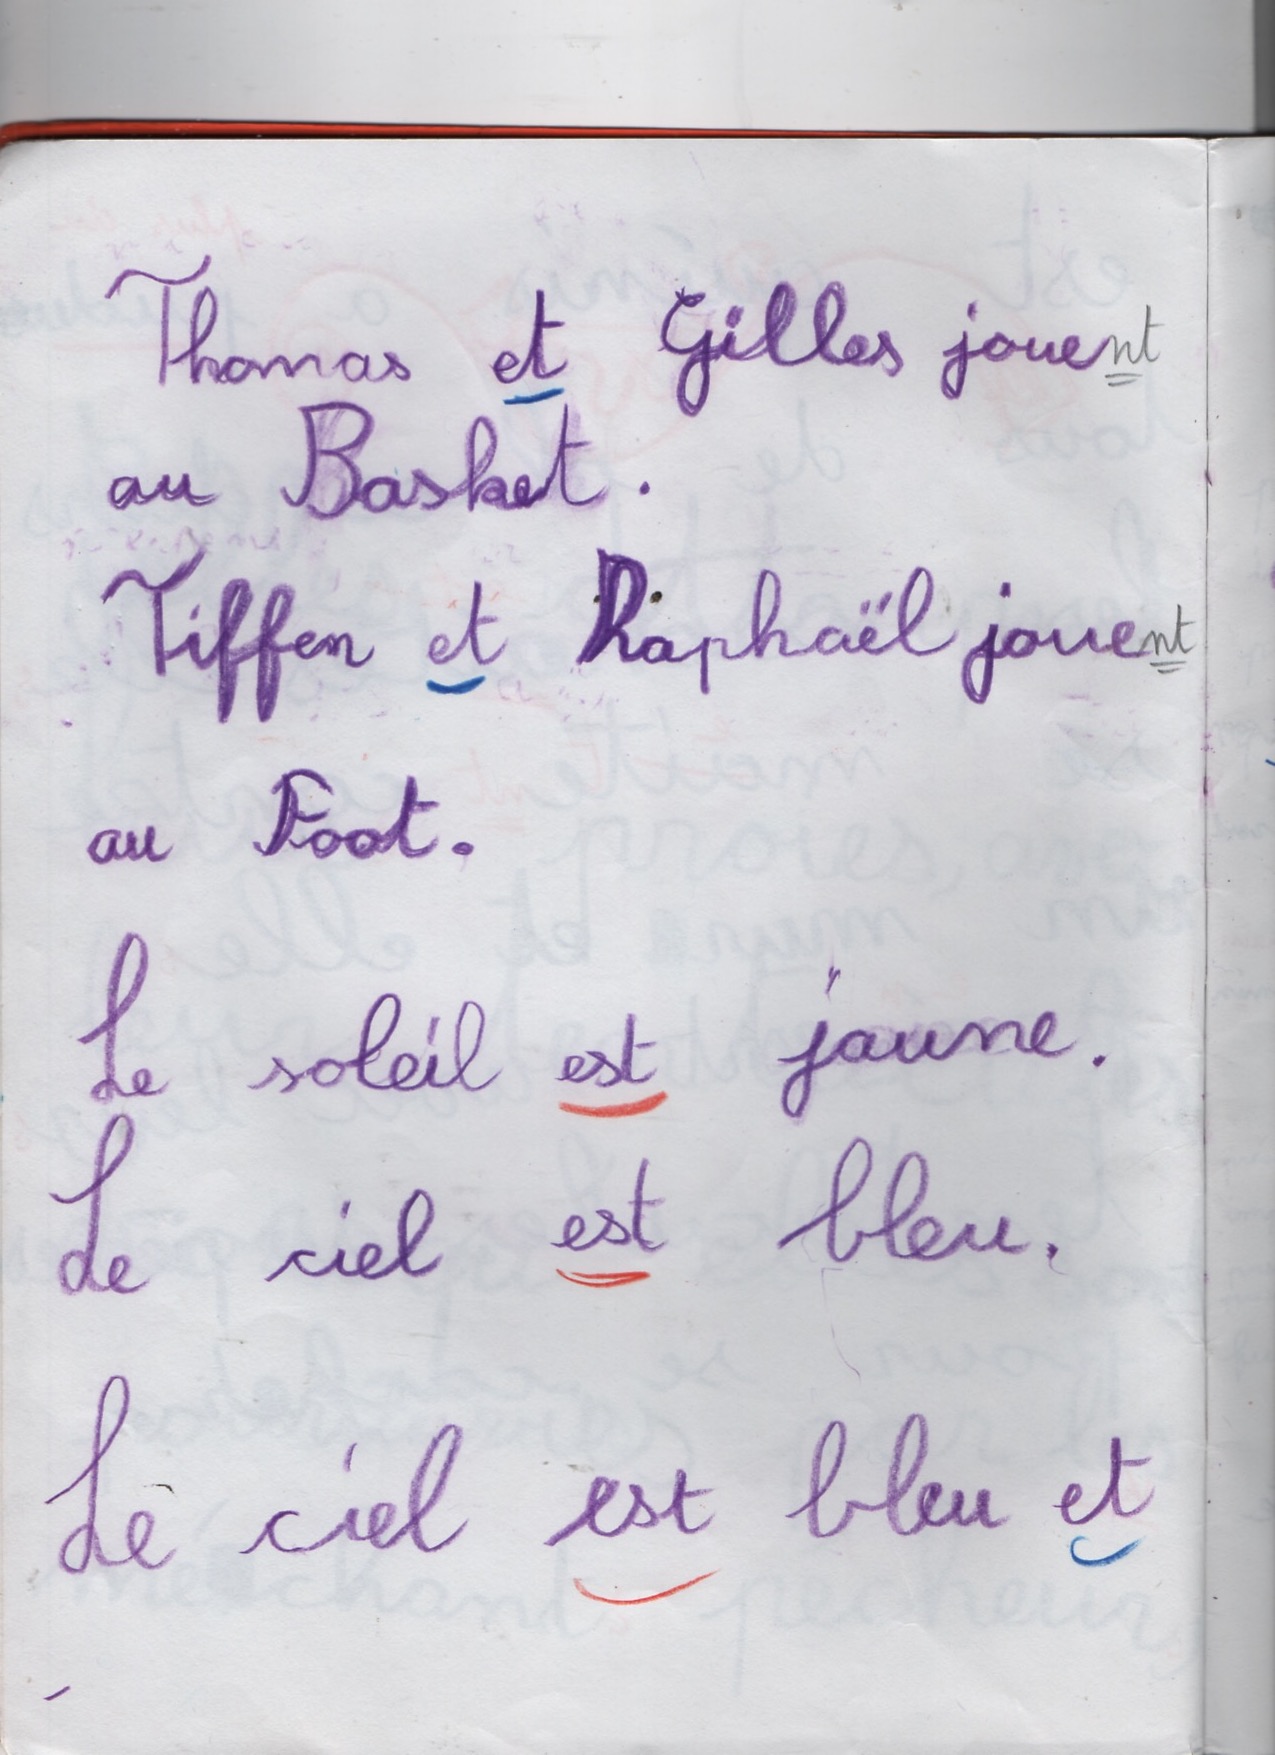 Thomas et Gilles jouent
au Basket.
Tiffen et Raphaël jouent
au Foot.
Le soleil est jaune.
Le ciel est bleu.
Le ciel est bleu et